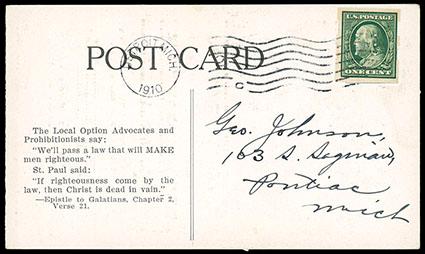 POST CARD
U.S. POSTAGE
ONE CENT
MICH.
1910
C
The Local Option Advocates and
Prohibitionists say:
"We'll pass a law that will MAKE
men righteous."
St. Paul said:
"If righteousness come by the
law, then Christ is dead in vain."
—Epistle to Galatians, Chapter 2,
Verse 21.
Geo. Johnson,
103 S.
Pontiac
Mich